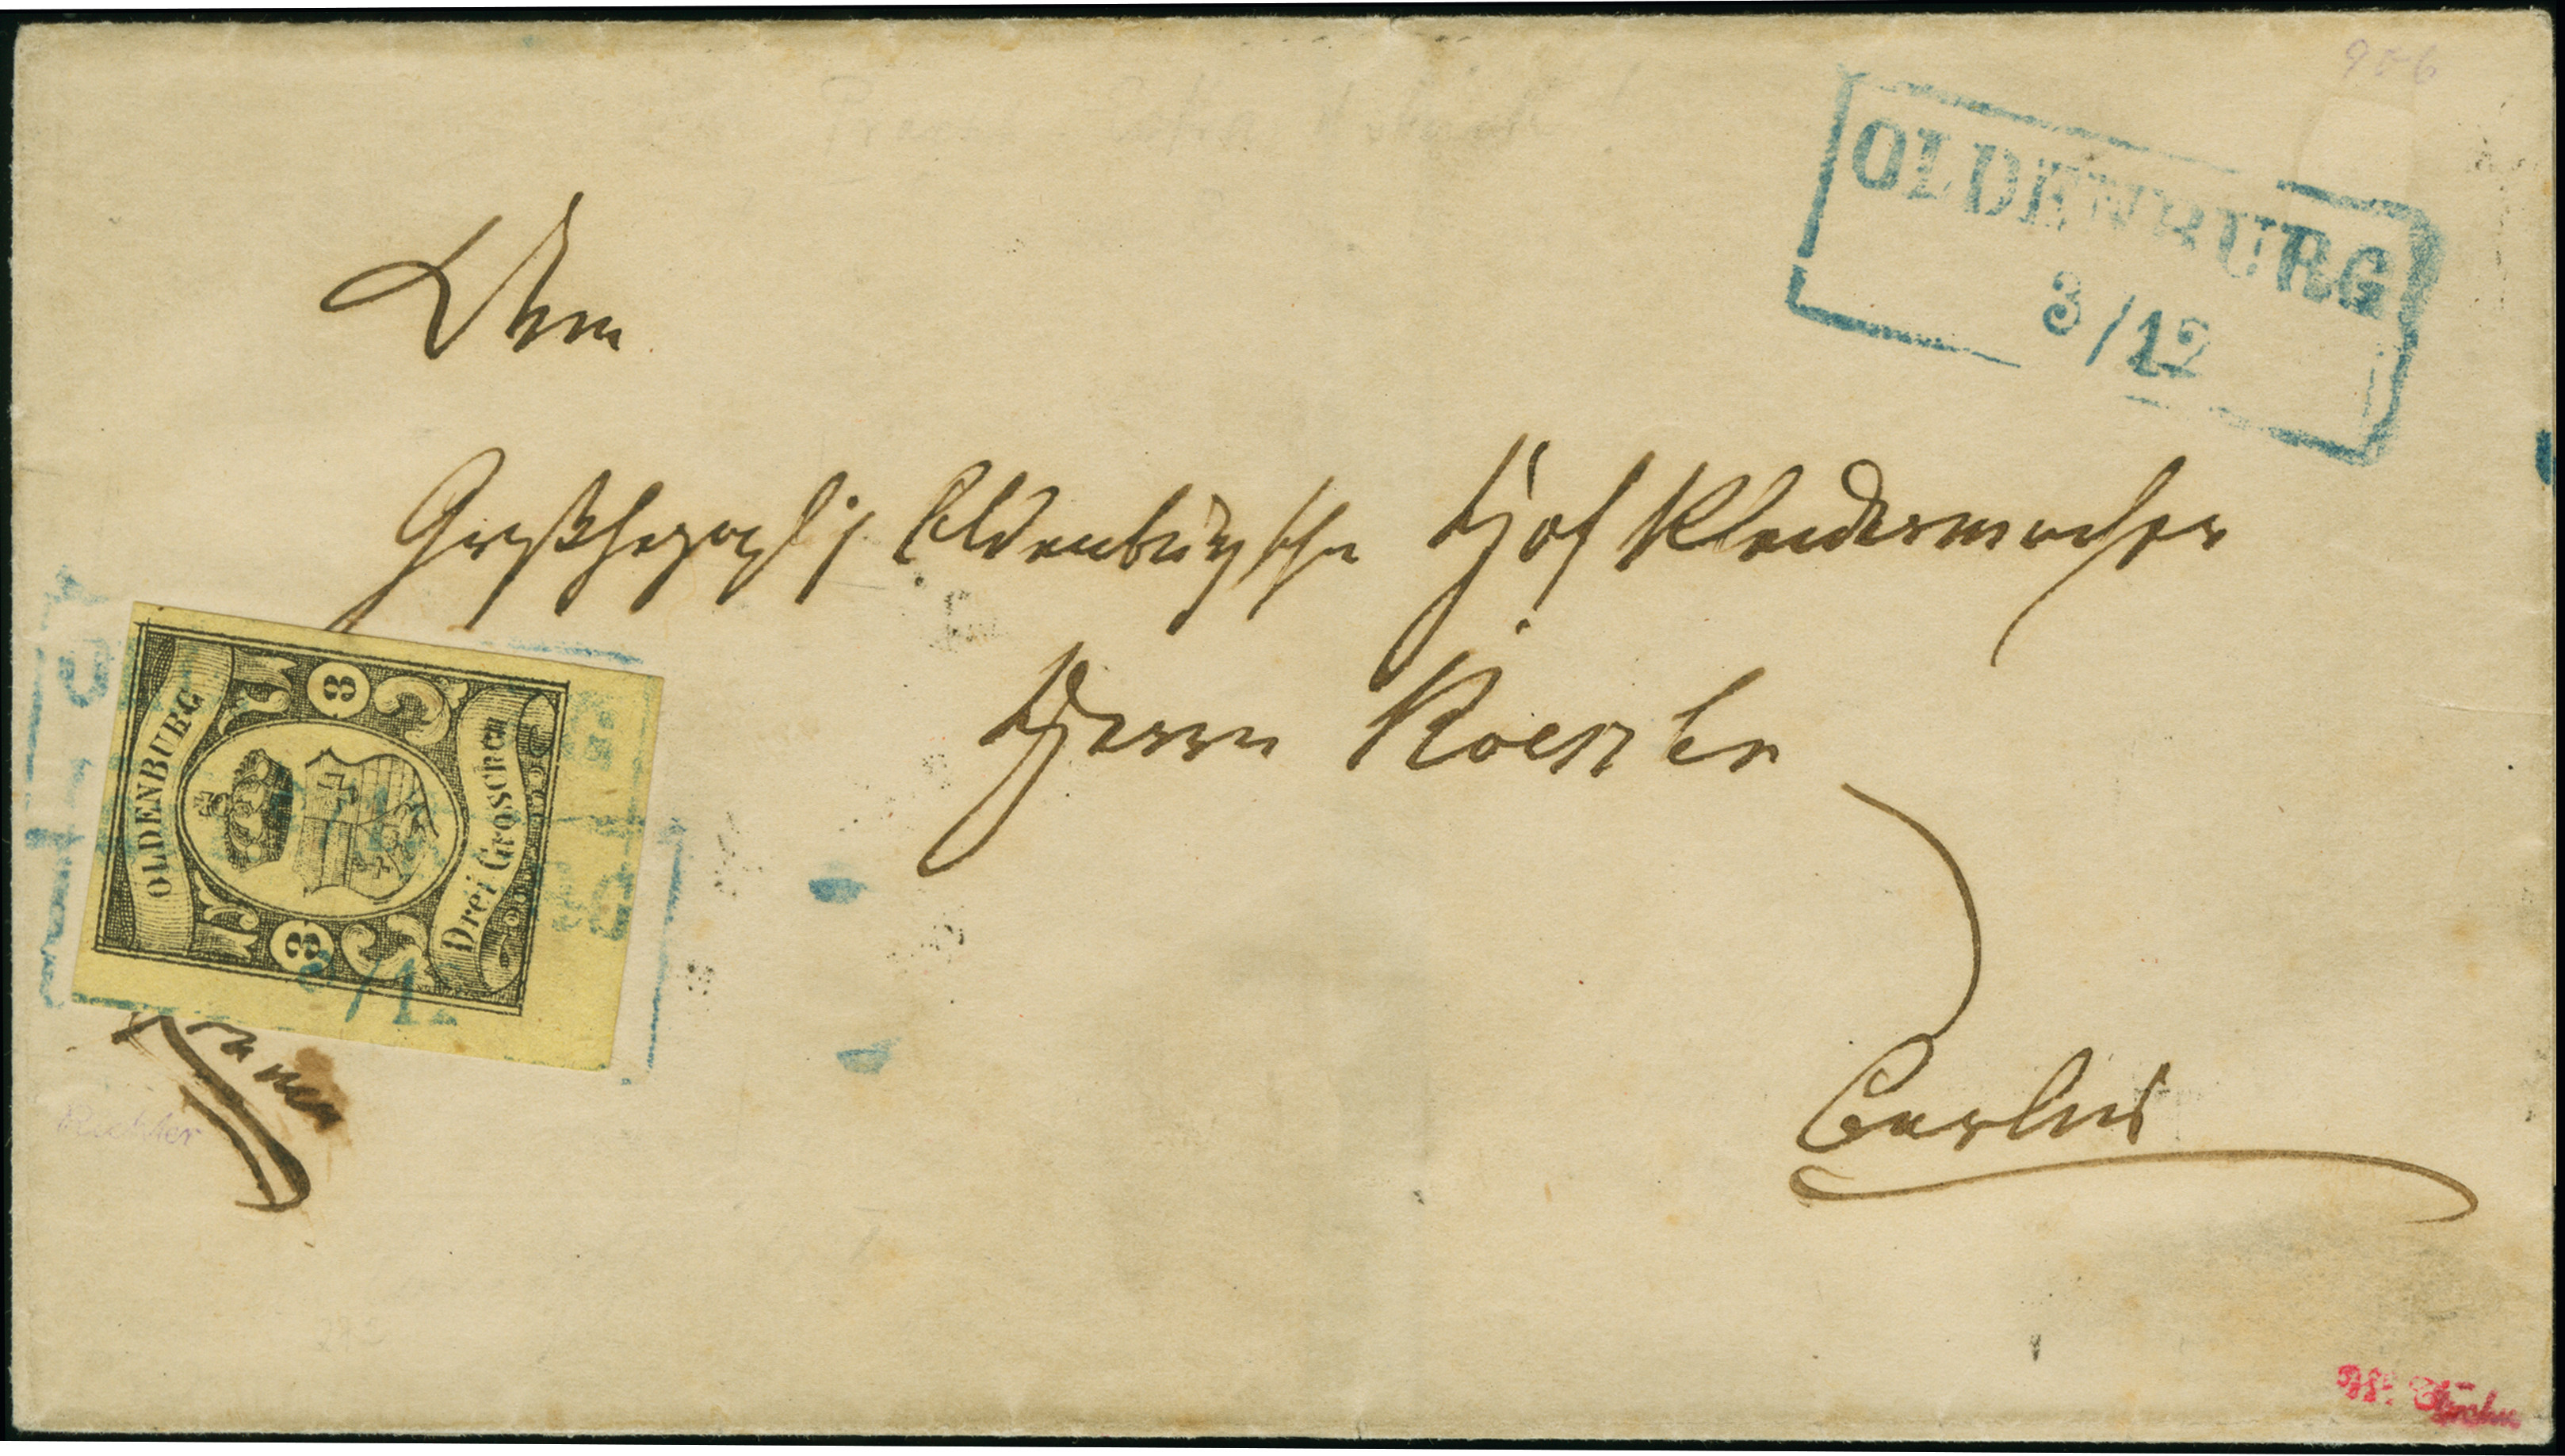 OLDENBURG
3/12
Dem
Großherzogl. Oldenburgsche Hof Kleidermacher
Herrn
Berlin
OLDENBURG
3
3
Drei Groschen
3/12
franco
Richter